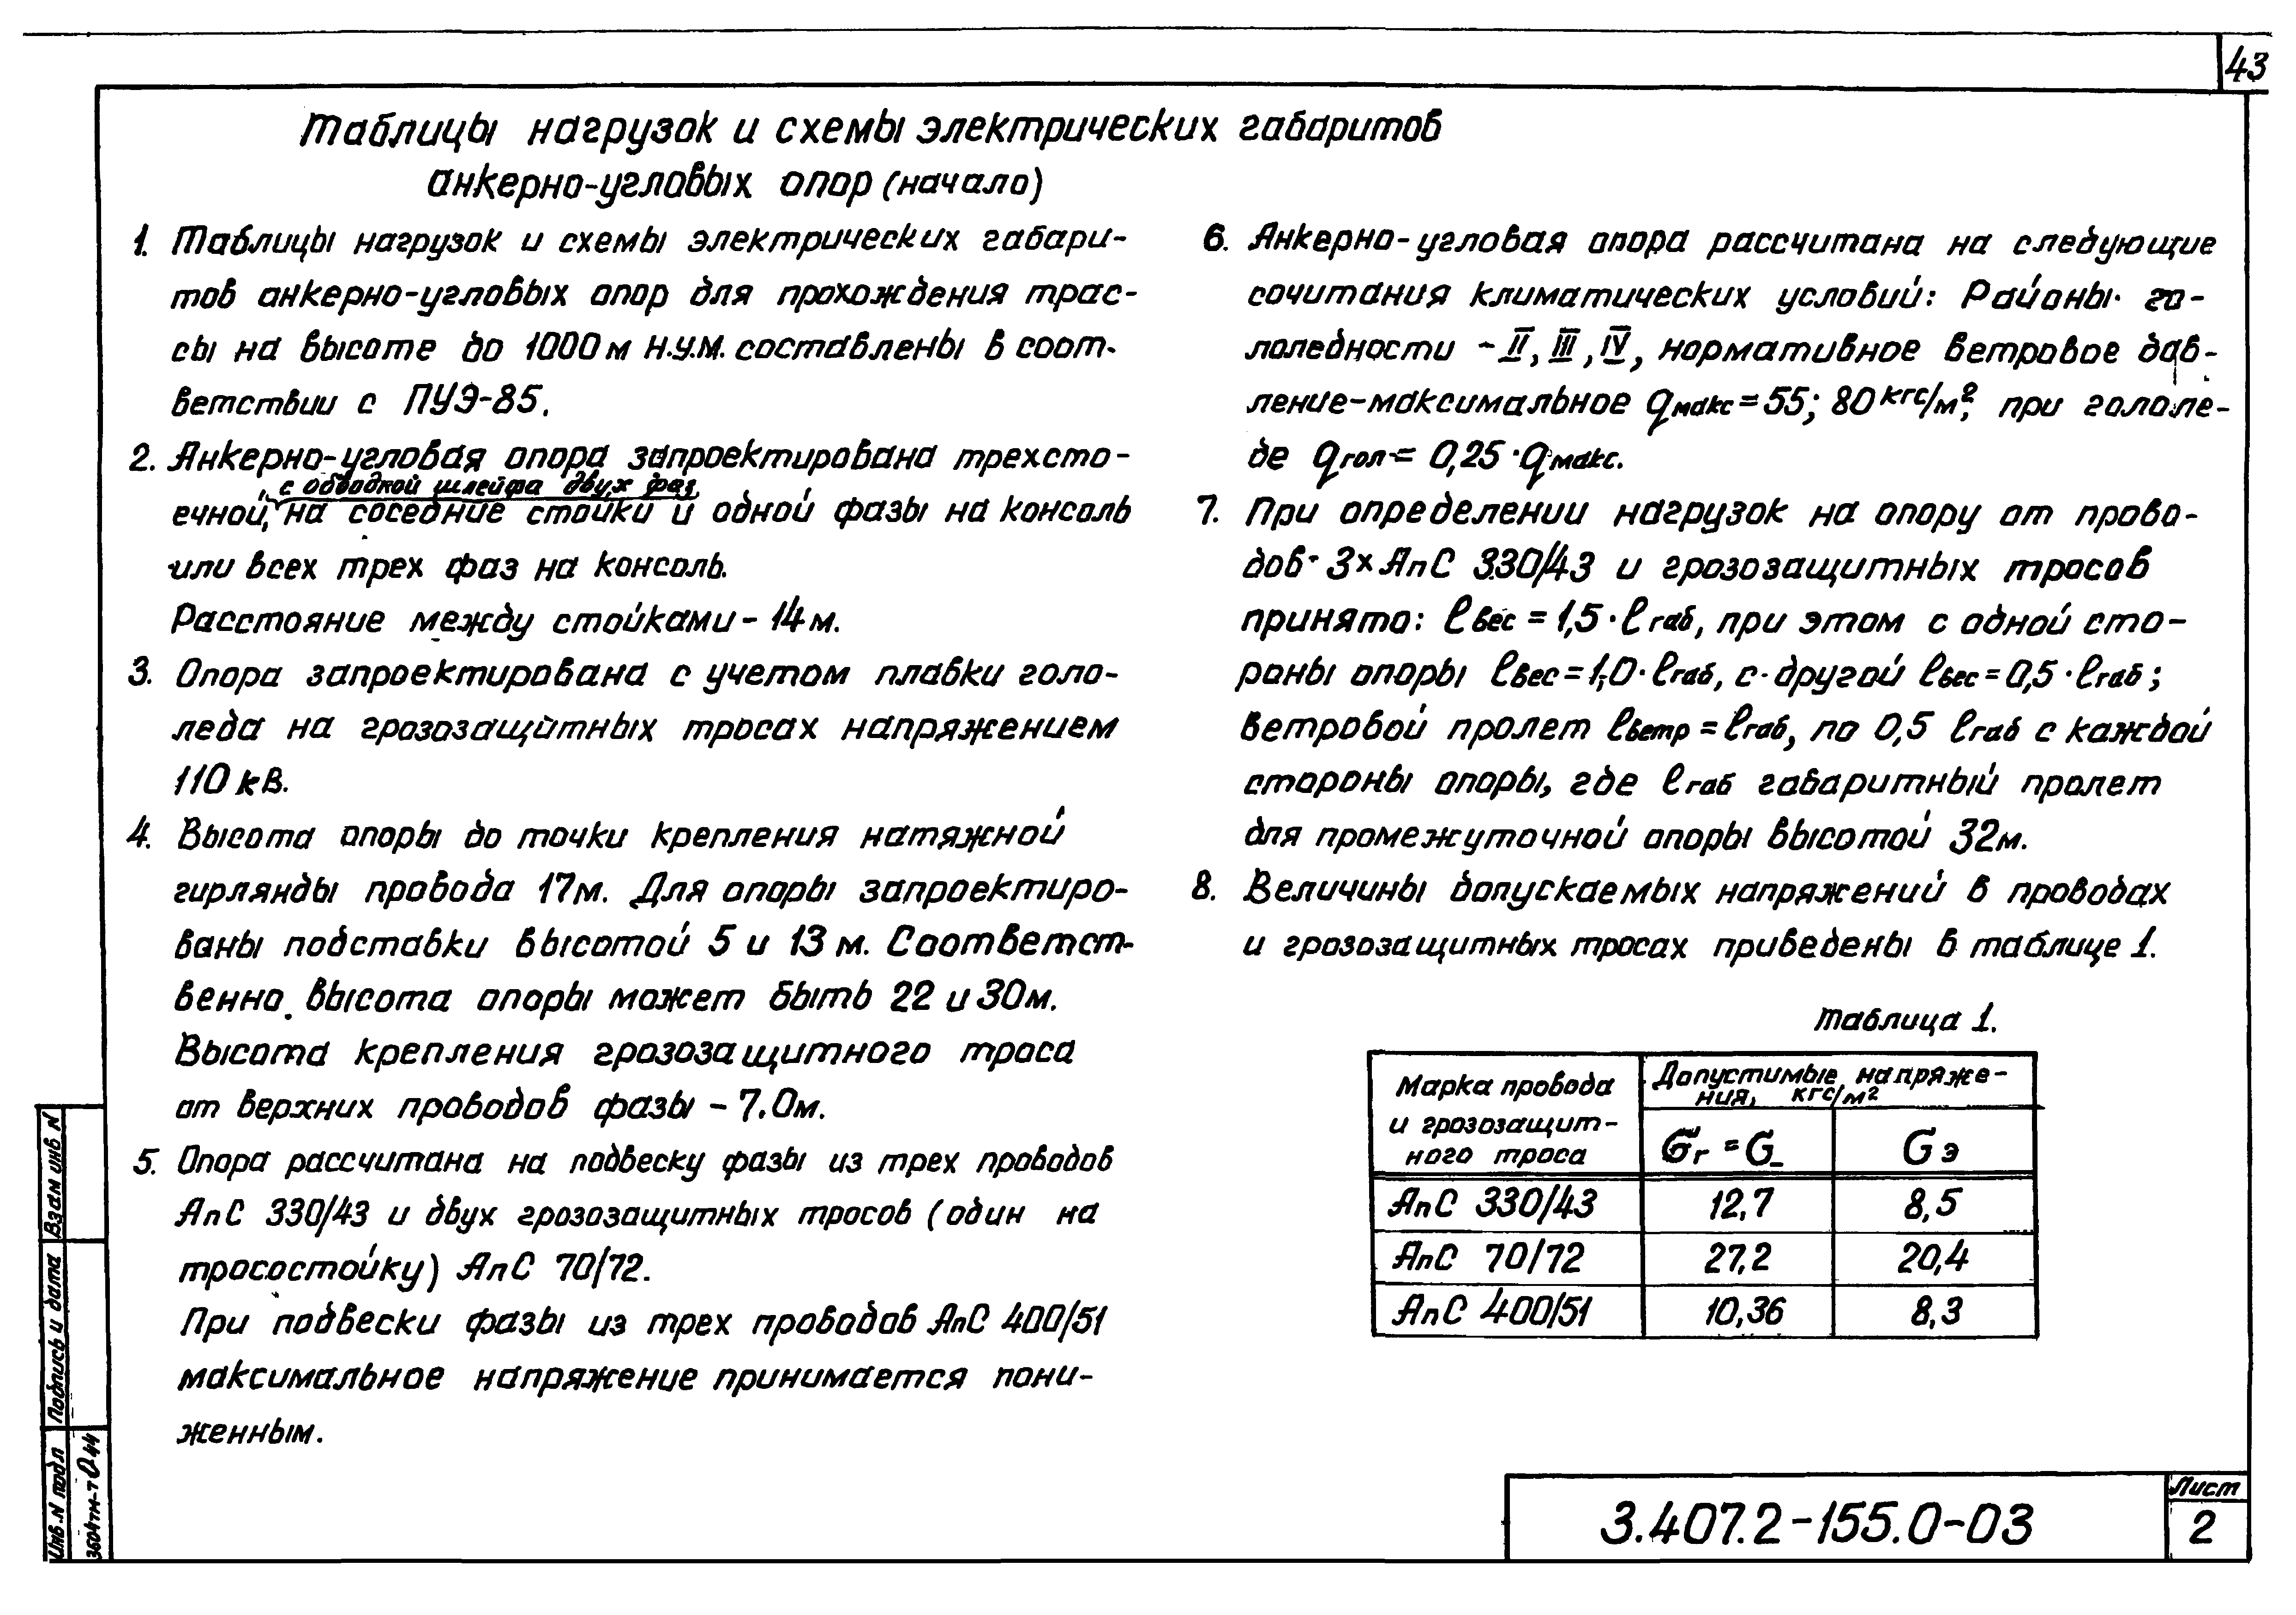 43
Таблицы нагрузок и схемы электрических габаритов
анкерно-угловых опор (начало)
1. Таблицы нагрузок и схемы электрических габари-
тов анкерно-угловых опор для прохождения трас-
сы на высоте до 1000 м н.у.м. составлены в соот-
ветствии с ПУЭ-85.
2. Анкерно-угловая опора запроектирована трехсто-
с обводкой шлейфа двух фаз
ечной, на соседние стойки и одной фазы на консоль
или всех трех фаз на консоль.
Расстояние между стойками - 14 м.
3. Опора запроектирована с учетом плавки голо-
леда на грозозащитных тросах напряжением
110 кВ.
4. Высота опоры до точки крепления натяжной
гирлянды провода 17м. Для опоры запроектиро-
ваны подставки высотой 5 и 13 м. Соответст-
венно высота опоры может быть 22 и 30м.
Высота крепления грозозащитного троса
от верхних проводов фазы - 7.0м.
5. Опора рассчитана на подвеску фазы из трех проводов
АпС 330/43 и двух грозозащитных тросов (один на
тросостойку) АпС 70/72.
При подвески фазы из трех проводов АпС 400/51
максимальное напряжение принимается пони-
женным.
6. Анкерно-угловая опора рассчитана на следующие
сочитания климатических условий: Районы го-
лоледности - II, III, IV, нормативное ветровое дав-
ление-максимальное qмакс = 55; 80 кгс/м², при гололе-
де qгол = 0,25 · qмакс.
7. При определении нагрузок на опору от прово-
дов - 3×АпС 330/43 и грозозащитных тросов
принято: ℓвес = 1,5 · ℓгаб, при этом с одной сто-
роны опоры ℓвес = 1,0 · ℓгаб, с другой ℓвес = 0,5 · ℓгаб;
ветровой пролет ℓветр = ℓгаб, по 0,5 ℓгаб с каждой
стороны опоры, где ℓгаб габаритный пролет
для промежуточной опоры высотой 32м.
8. Величины допускаемых напряжений в проводах
и грозозащитных тросах приведены в таблице 1.
Таблица 1.
Марка провода
и грозозащит-
ного троса
Допустимые напряже-
ния, кгс/м²
σг = σ-
σэ
АпС 330/43 12,7 8,5
АпС 70/72 27,2 20,4
АпС 400/51 10,36 8,3
3.407.2-155.0-03
Лист
2
Взам инв N
Подпись и дата
Инв. N подл
3604тм-т0 44